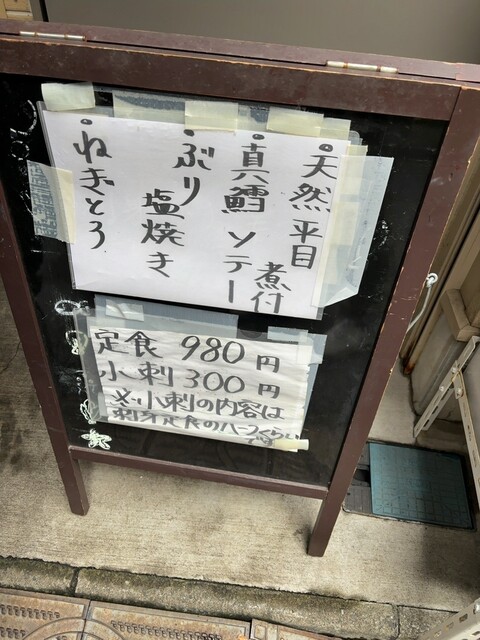 ・天然平目
煮付
・真鱈
ソテー
・ぶり
塩焼き
・ねぎとろ
定食 980円
小刺 300円
※小刺の内容は
刺身定食のハーフくらい
です